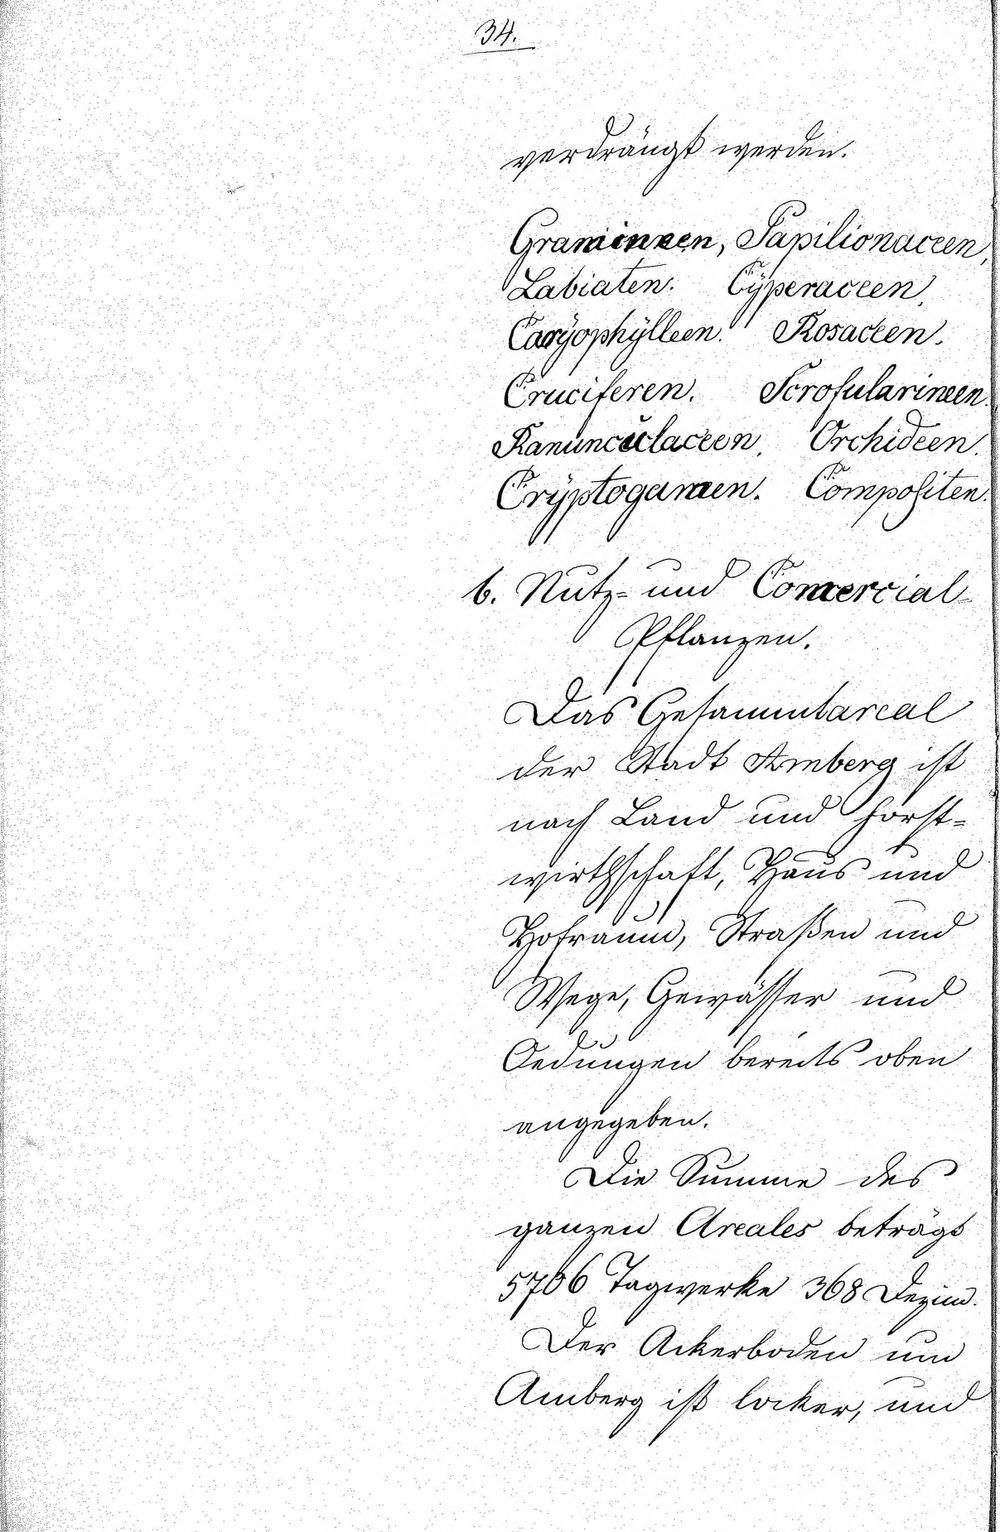 34.
verdrängt werden.
Graminnen, Papilionaceen,
Labiaten. Cÿperaceen,
Carÿophÿlleen. Rosaceen.
Cruciferen. Scrofularineen.
Ranunculaceen, Orchideen.
Crÿptogamen. Compositen.
b. Nutz- und Comercial-
Pflanzen.
Das Gesammtareal
der Stadt Amberg ist
nach Land und Forst-
wirthschaft, Haus und
Hofraum, Straßen und
Wege, Gewässer und
Oedungen bereits oben
angegeben.
Die Summe des
ganzen Areales beträgt
5706 Tagwerke 368 Dezim.
Der Ackerboden um
Amberg ist locker, und